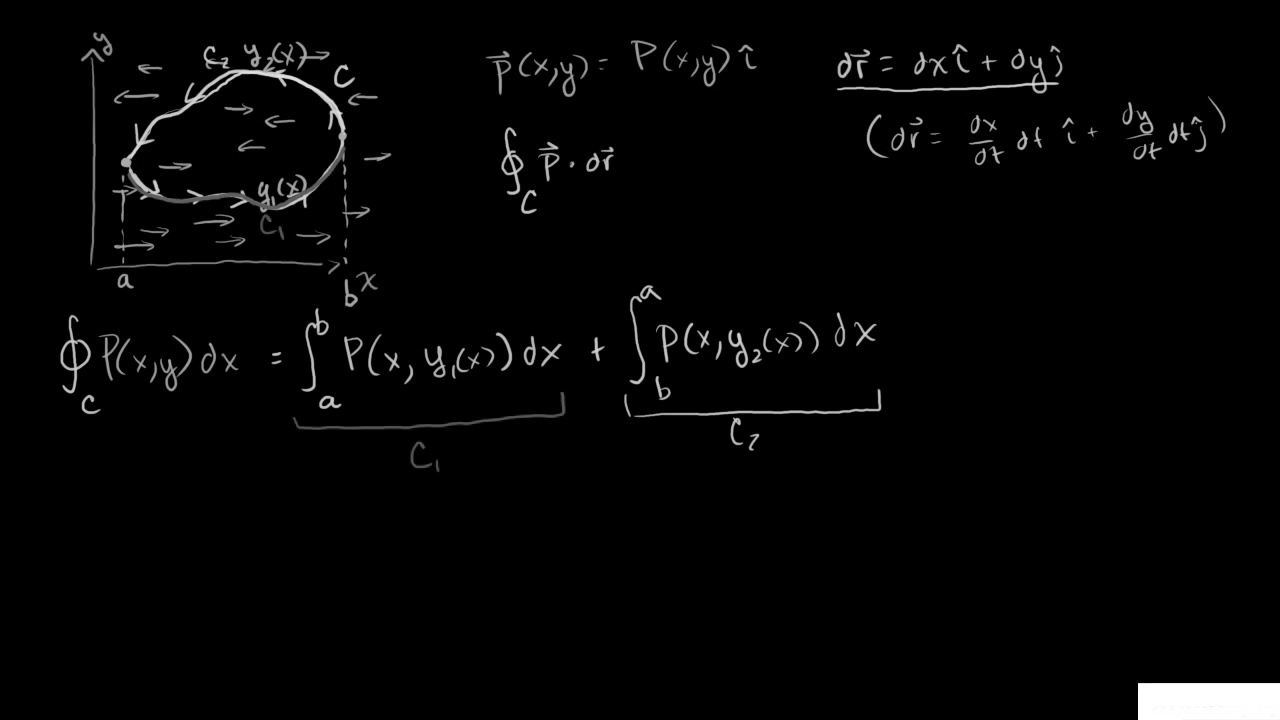 y
C₂ y₂(x)
C
y₁(x)
C₁
a
b x
p⃗(x,y) = P(x,y) î
∮_C p⃗ · dr⃗
dr⃗ = dx î + dy ĵ
(dr⃗ = dx/dt dt î + dy/dt dt ĵ)
∮_C P(x,y) dx = ∫_a^b P(x, y₁(x)) dx + ∫_b^a P(x, y₂(x)) dx
C₁
C₂